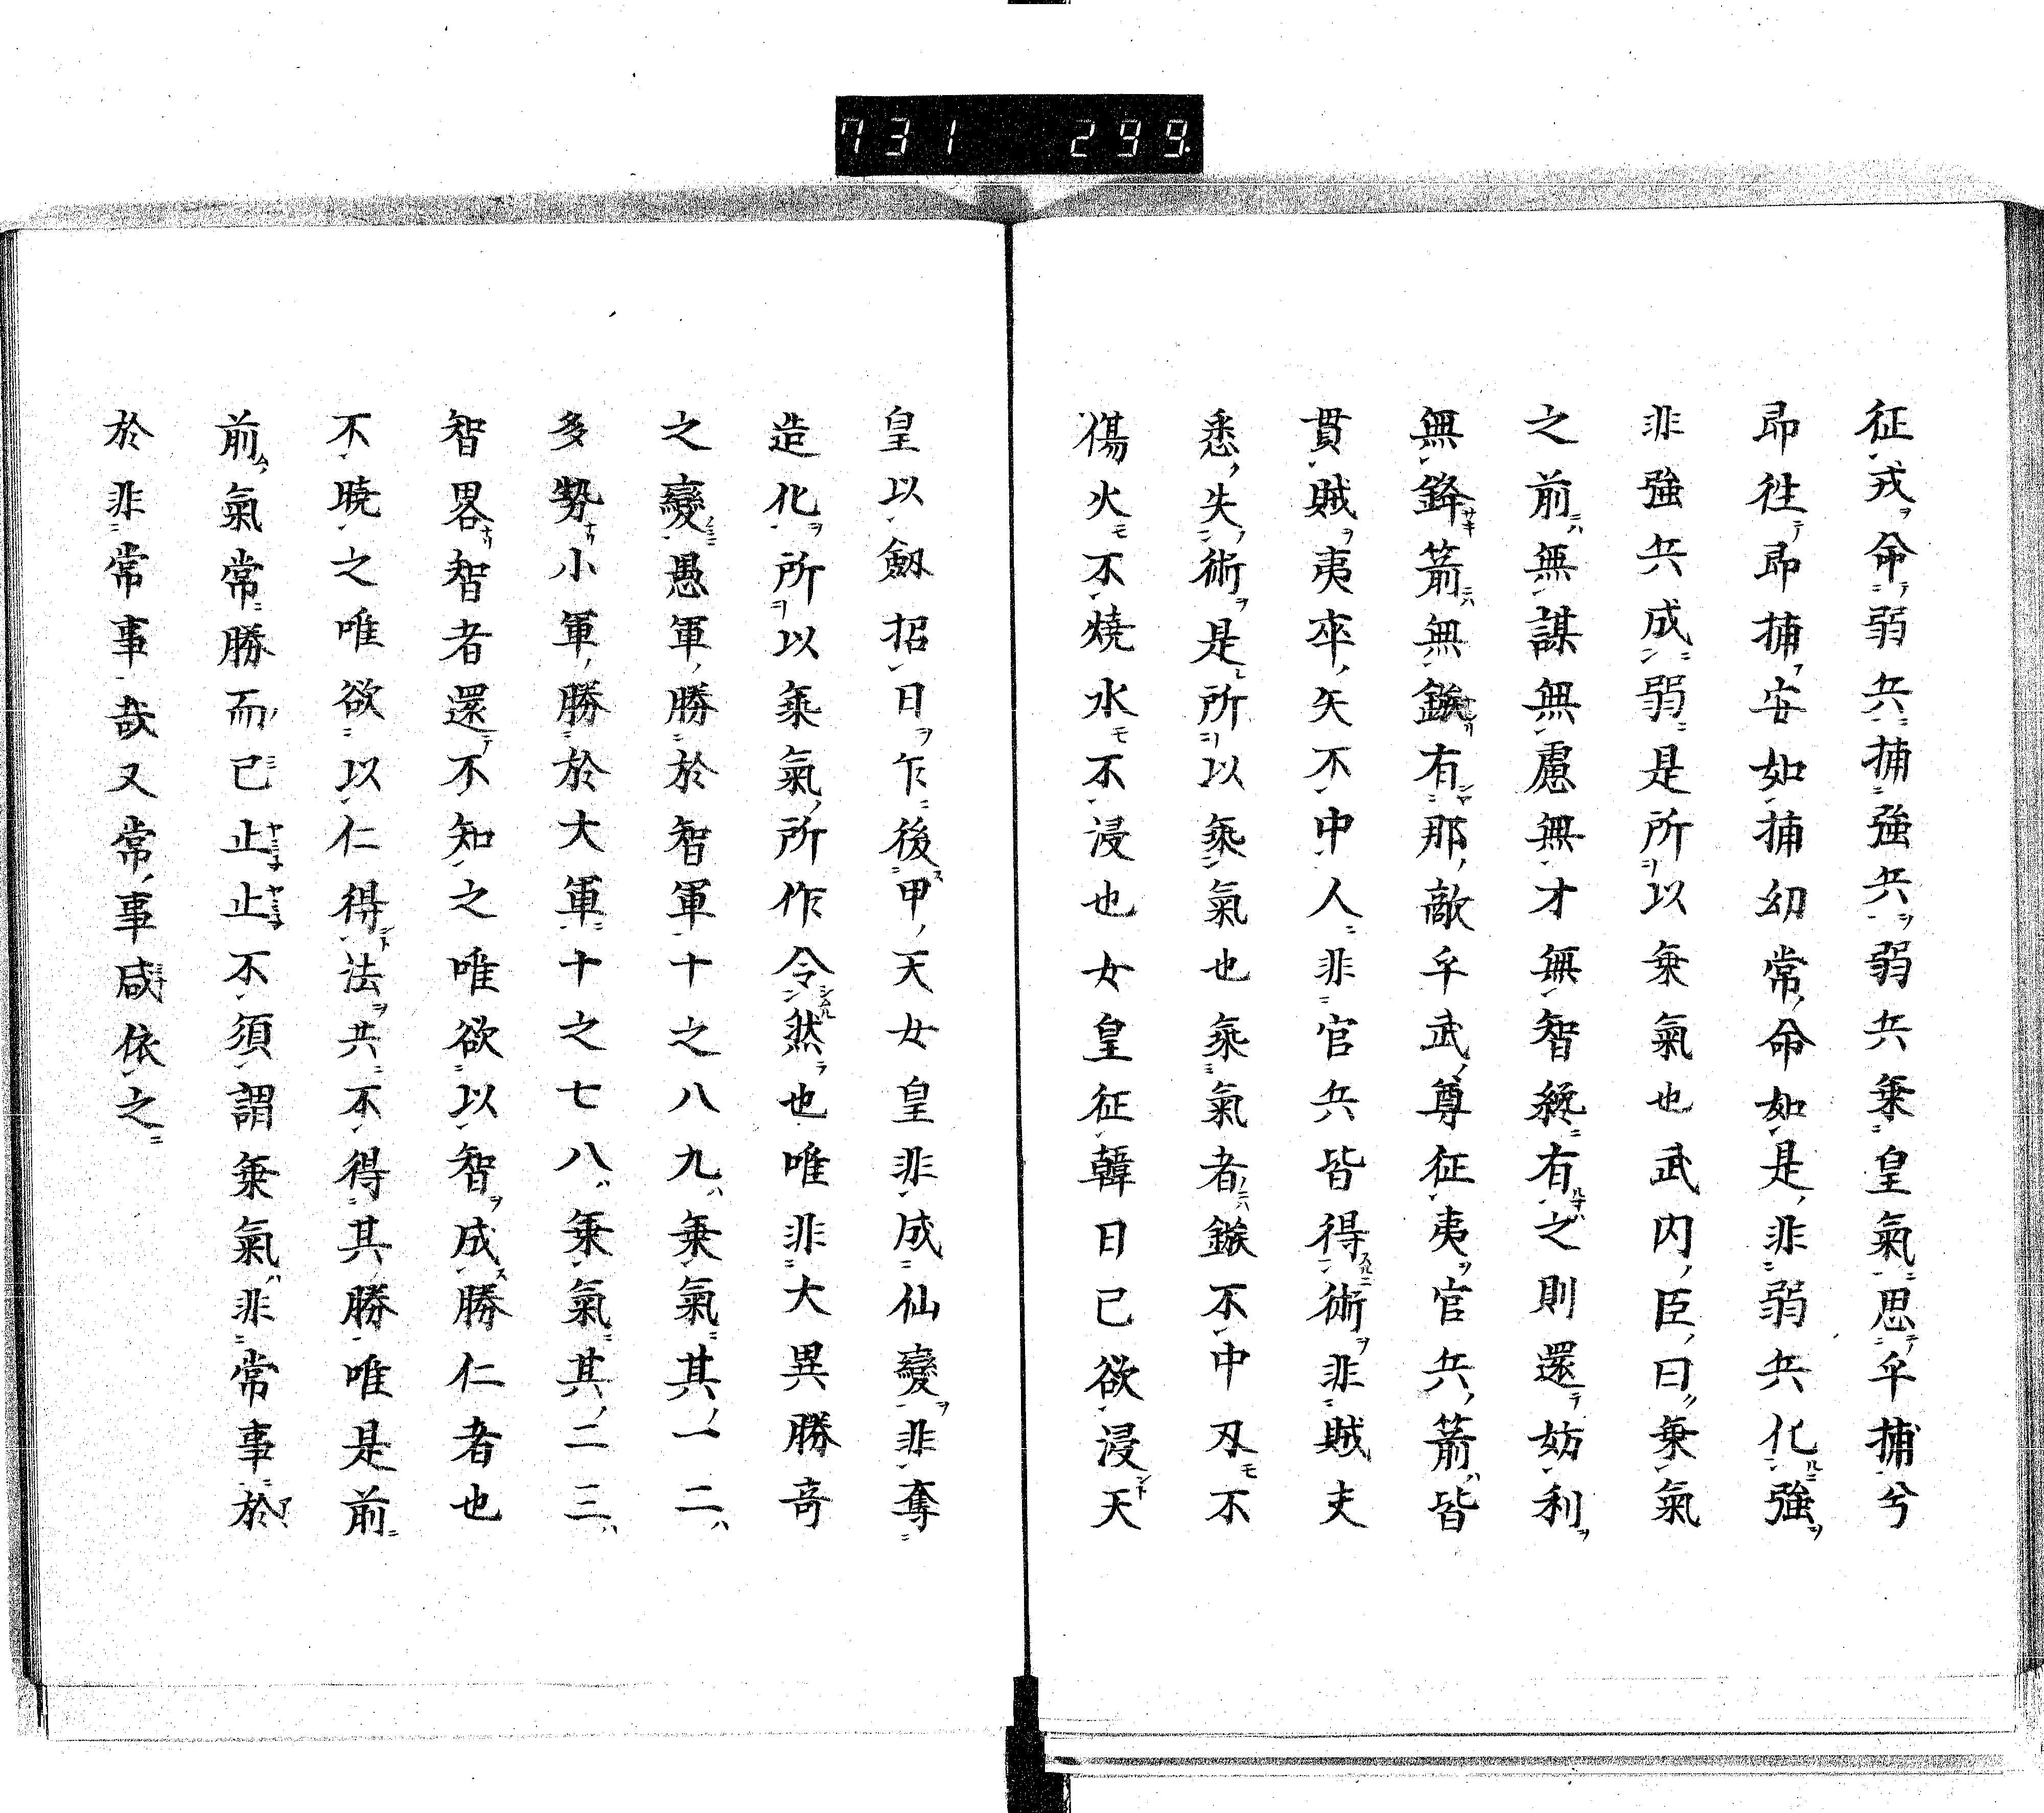 731 299
征戎命弱兵捕強兵弱兵乗皇氣思乎捕兮
即徃即捕安如捕幼常命如是非弱兵化強
非強兵成弱是所以乗氣也武内臣曰乗氣
之前無謀無慮無才無智縦有之則還妨利
無鋒箭無鏃有那敵乎武尊征夷官兵箭皆
貫賊夷卒矢不中人非官兵皆得術非賊夫
悉失術是所以乗氣也乗氣者鏃不中刄不
傷火不燒水不浸也女皇征韓日已欲浸天
皇以劔招日乍後甲天女皇非成仙變非奪
造化所以乗氣所作令然也唯非大異勝竒
之變愚軍勝於智軍十之八九乗氣其一二
多勢小軍勝於大軍十之七八乗氣其二三
智畧智者還不知之唯欲以智成勝仁者也
不曉之唯欲以仁得法共不得其勝唯是前
前氣常勝而已止止不須謂乗氣非常事於
於非常事哉又常事咸依之